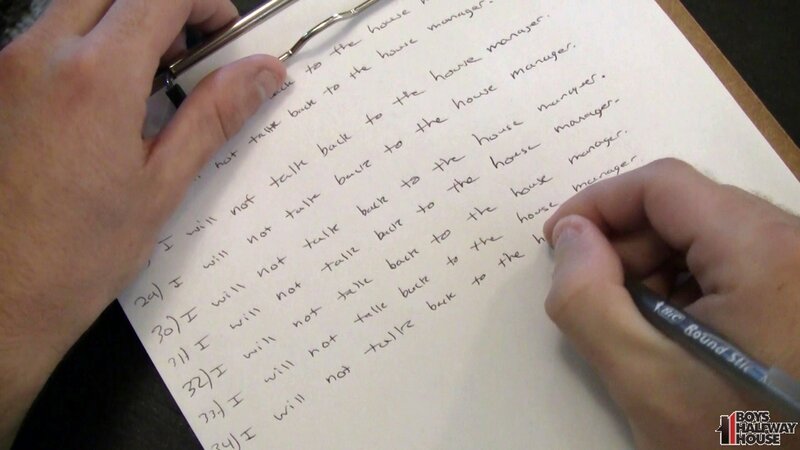 back to the house
not talk back to the house manager.
I will not talk back to the house manager.
29) I will not talk back to the house manager.
30) I will not talk back to the house manager.
31) I will not talk back to the house manager.
32) I will not talk back to the house manager.
33) I will not talk back to the house manager.
34) I will not talk back to the h
BIC Round Stic
BOYS
HALFWAY
HOUSE